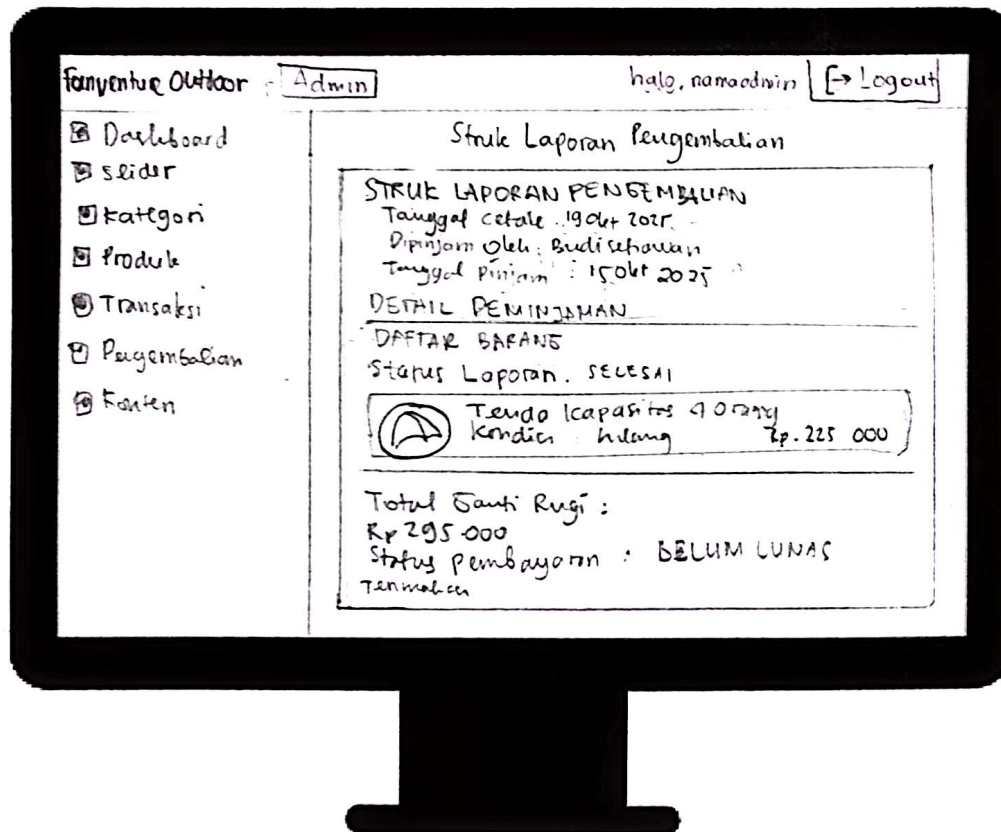 Fanventure Outdoor - Admin
halo, namaadmin [→ Logout
Dashboard
Slider
Kategori
Produk
Transaksi
Pengembalian
Konten
Struk Laporan Pengembalian
STRUK LAPORAN PENGEMBALIAN
Tanggal cetak : 19 Okt 2025
Dipinjam Oleh : Budi setiawan
Tanggal pinjam : 15 Okt 2025
DETAIL PEMINJAMAN
DAFTAR BARANG
Status Laporan. SELESAI
Tenda kapasitas 4 orang
Kondisi hilang Rp. 225 000
Total Ganti Rugi :
Rp 295.000
Status pembayaran : BELUM LUNAS